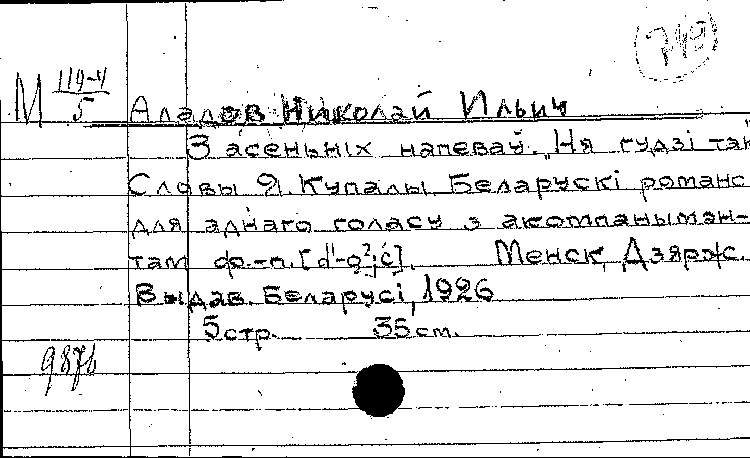 М 119-4/5 Аладов Николай Ильич
З асеньніх напеваў. "Ня гудзі так"
Словы Я. Купалы. Беларускі романс
для аднаго голасу з акомпаньман-
там ф.-п. Менск, Дзярж.
Выдав. Беларусі, 1926
5 стр. 35 см.